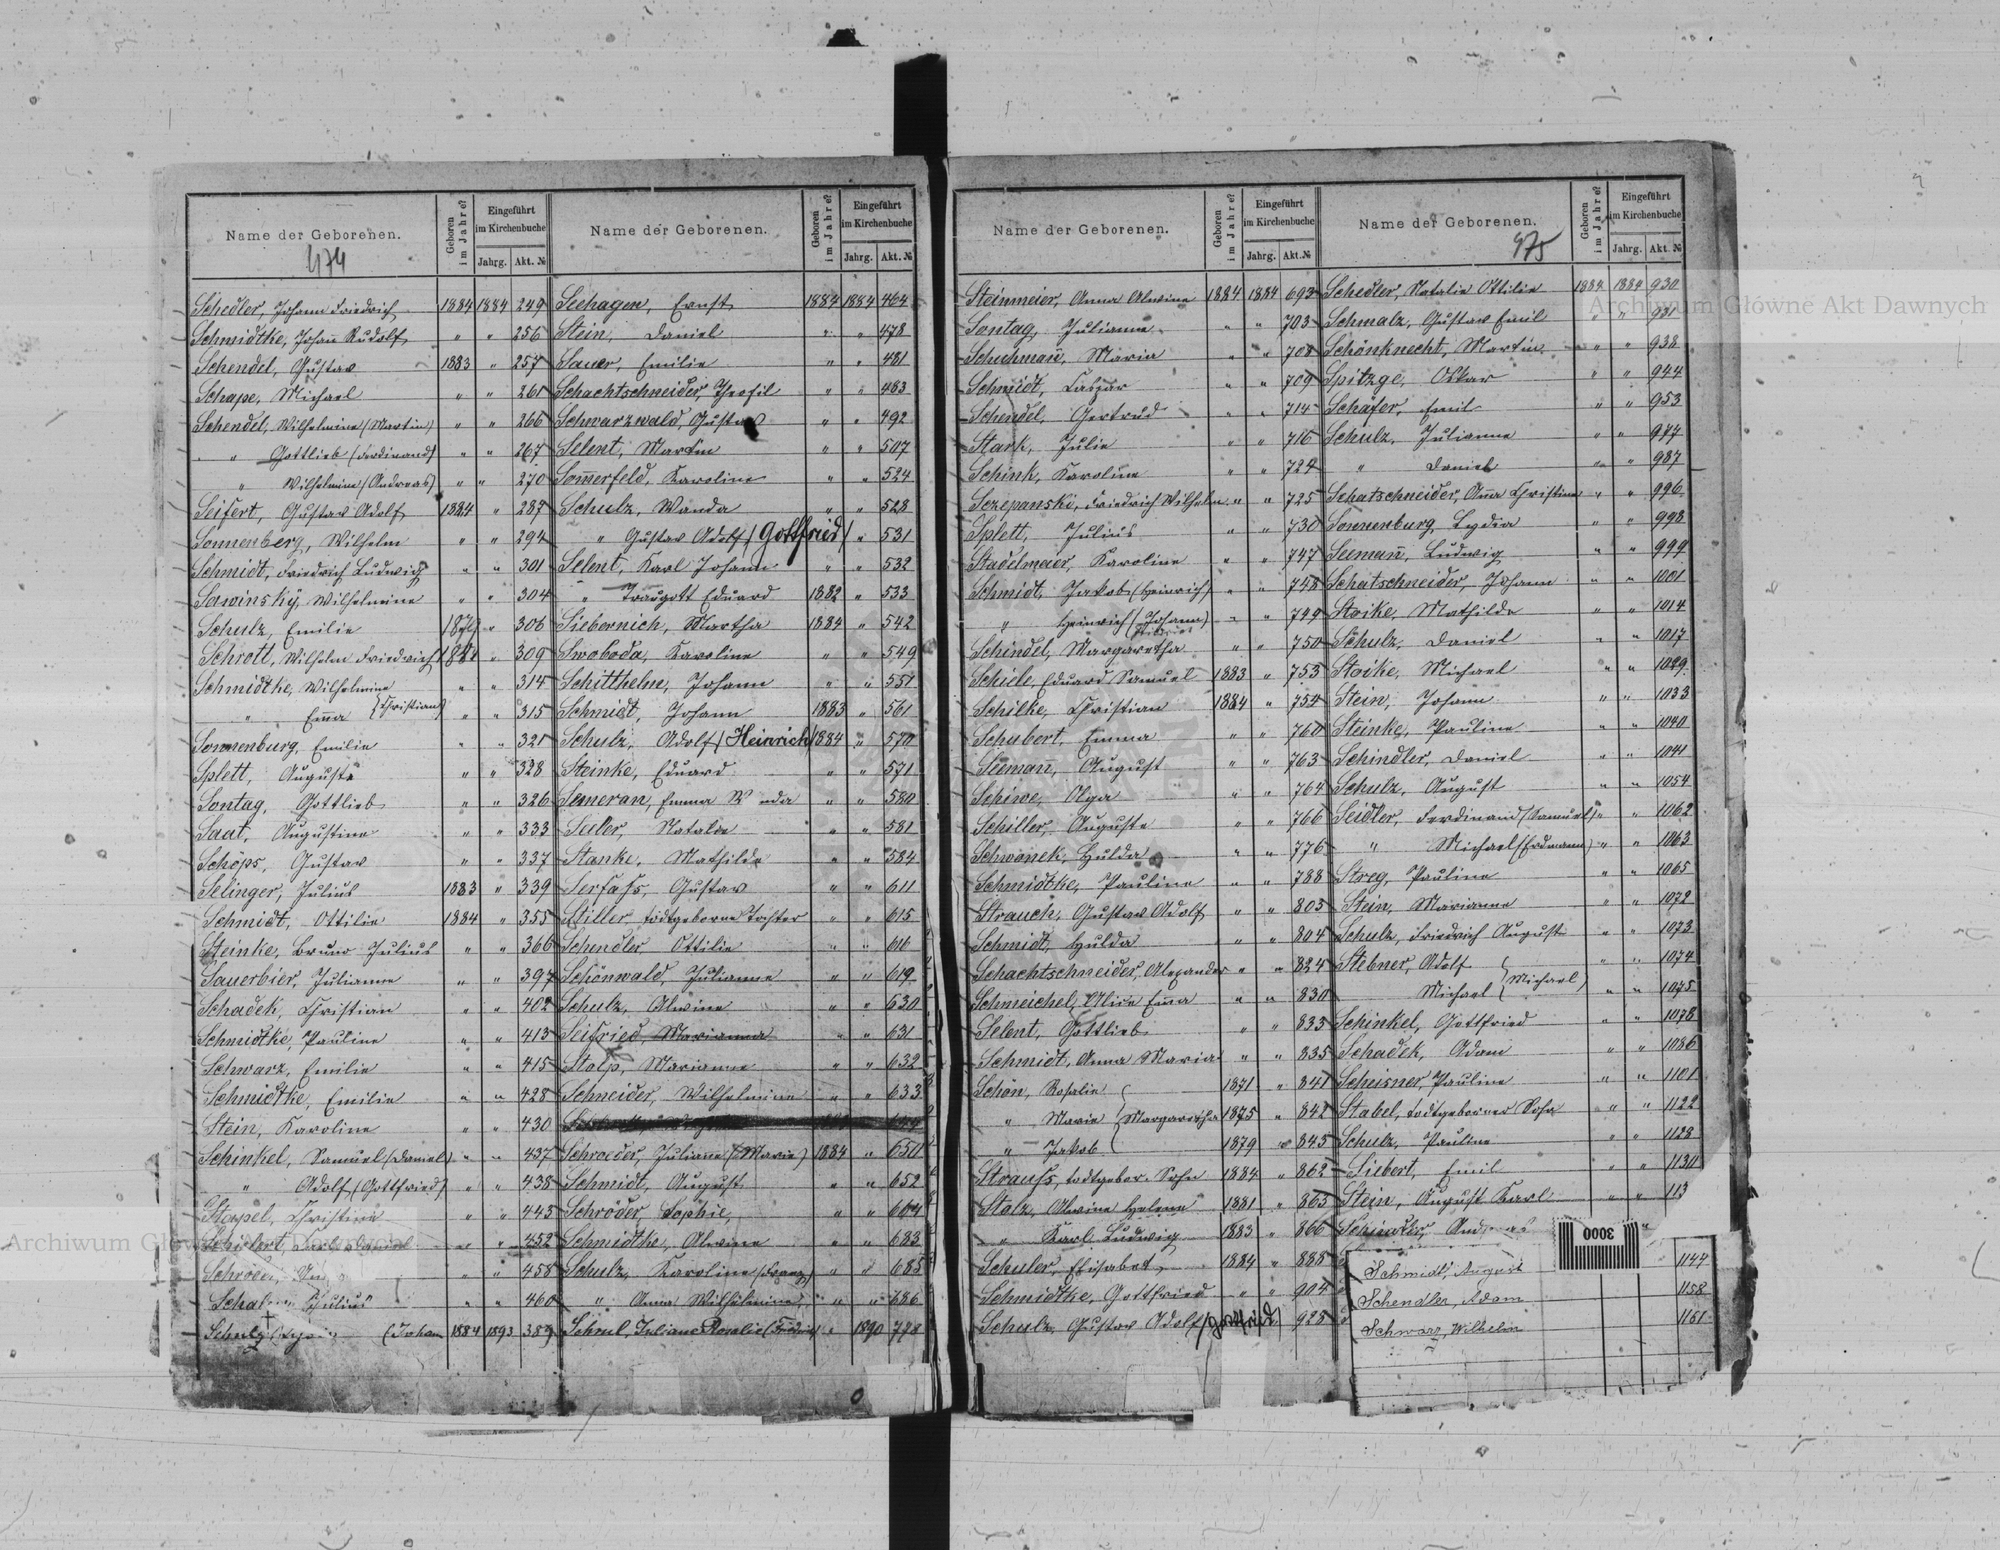 Name der Geborenen.
Geboren im Jahre?
Eingeführt im Kirchenbuche
Jahrg. Akt. №
474
Schedler, Johann Friedrich 1884 1884 249
Schmidtke, Johan Rudolf " " 256
Schendel, Gustav 1883 " 257
Schape, Michael " " 261
Schendel, Wilhelmine (Martin) " " 266
" Gottlieb (Ferdinand) " " 267
" Wilhelmine (Andreas) " " 270
Seifert, Gustav Adolf 1884 " 287
Sonnenberg, Wilhelm " " 294
Schmidt, Friedrich Ludwig " " 301
Sawinsky, Wilhelmine " " 304
Schulz, Emilie " 306
Schrott, Wilhelm Friedrich 1884 " 309
Schmidtke, Wilhelmine " " 314
" Em̄a (Christian) " " 315
Sonnenburg, Emilie " " 321
Splett, Auguste " " 328
Sontag, Gottlieb " " 326
Saat, Augustine " " 333
Schöps, Gustav " " 337
Selinger, Julius 1883 " 339
Schmidt, Ottilie 1884 " 355
Steinke, Bruno Julius " " 366
Sauerbier, Julianne " " 397
Schadek, Christian " " 402
Schmidtke, Pauline " " 413
Schwarz, Emilie " " 415
Schmidtke, Emilie " " 428
Stein, Karoline " " 430
Schinkel, Samuel (Daniel) " " 437
" Adolf (Gottfried) " " 438
Stoppel, Christine " " 443
" " 452
" " 458
Julius " " 460
Schulz (Johan 1884 1893 389
Name der Geborenen.
Geboren im Jahre?
Eingeführt im Kirchenbuche
Jahrg. Akt. №
Seehagen, Ernst 1884 1884 464
Stein, Daniel " " 478
Sauer, Emilie " " 481
Schachtschneider, Theofil " " 483
Schwarzwald, Gustav " " 492
Selent, Martin " " 507
Som̄erfeld, Karoline " " 524
Schulz, Wanda " " 528
" Gustav Adolf (Gottfried) " 531
Selent, Karl Johann " " 532
" Traugott Eduard 1882 " 533
Siebernich, Martha 1884 " 542
Swoboda, Karoline " " 549
Schitthelm, Johann " " 551
Schmidt, Johann 1883 " 561
Schulz, Adolf (Heinrich) 1884 " 570
Steinke, Eduard " " 571
Semeran, Emma W nda " " 580
Natalie " " 581
Stanke, Mathilde " " 584
Serfass, Gustav " " 611
Stiller, todtgeborne Tochter " " 615
Schendler Ottilie " " 616
Schönwald, Julianne " " 619
Schulz, Alwine " " 630
Seifried Marianna " " 631
Stolp, Marianne " " 632
Schneider, Wilhelmine " " 633
Schroeder, Juliane (Marie) 1884 " 650
Schmidt, August " " 652
Schröder, Sophie, " " 664
Schmidtke, Alwine " " 683
Schulz, Karoline (Franz) " " 685
" Anna Wilhelmine " " 686
Juliane Rosalie " 1890 778
Name der Geborenen.
Geboren im Jahre?
Eingeführt im Kirchenbuche
Jahrg. Akt. №
Steinmeier, Anna Alwine 1884 1884 693
Sontag, Julianne " " 703
Schuhman̄, Maria " " 708
Schmidt, Caspar " " 709
Schendel, Gertrud " " 714
Stark, Julie " " 716
Schink, Karoline " " 724
Sczepanski, Friedrich Wilhelm " " 725
Splett, Julius " " 730
Stadelmeier, Karoline " " 747
Schmidt, Jakob (Heinrich) " " 748
" Heinrich (Johann) " " 749
Schindel, Margaretha " " 750
Schiele, Eduard Samuel 1883 " 753
Schilke, Christian 1884 " 754
Schubert, Emma " " 760
Seeman̄, August " " 763
Schiwe, Olga " " 764
Schiller, Auguste " " 766
Schwanek, Hulda " " 776
Schmidtke, Pauline " " 788
Strauch, Gustav Adolf " " 803
Schmidt, Hulda " " 804
Schachtschneider, Alexander " " 824
Schmeichel, Alice Em̄a " " 830
Selent, Gottlieb " " 833
Schmidt, Anna Maria " " 835
Schön, Rosalie 1871 " 841
" Marie (Margaretha 1875 " 842
" Jakob 1879 " 843
Strauss, todtgebor. Sohn 1884 " 862
Stolz, Alwine Helene 1881 " 863
" Karl Ludwig 1883 " 866
Schuler, Elisabet 1884 " 888
Schmidtke, Gottfried " " 904
Schulz, Gustav Adolf (Gottfried) 928
Name der Geborenen.
Geboren im Jahre?
Eingeführt im Kirchenbuche
Jahrg. Akt. №
475
Schedler, Natalie Ottilie 1884 1884 930
Schmalz, Gustav Emil " " 931
Schönknecht, Martin " " 938
Spitzge, Oskar " " 944
Schäfer, Emil " " 953
Schulz, Julianne " " 977
" Daniel " " 987
Schatschneider, An̄a Christine " " 996
Sonnenburg, Lydia " " 998
Seeman̄, Ludwig " " 999
Schatschneider, Johann " " 1001
Stoike, Mathilde " " 1014
Schulz, Daniel " " 1017
Stoike, Michael " " 1029
Stein, Johann " " 1033
Steinke, Pauline " " 1040
Schindler, Daniel " " 1041
Schulz, August " " 1054
Seidler, Ferdinand (Samuel) " " 1062
" Michael (Erdmann) " " 1063
Streg, Pauline " " 1065
Stein, Marianne " " 1072
Schulz, Friedrich August " " 1073
Stebner, Adolf " " 1074
Michael (Michael) " " 1075
Schinkel, Gottfried " " 1078
Schadek, Adam " " 1086
Scheisner, Pauline " " 1101
Stabel, todtgeborner Sohn " " 1122
Schulz, Pauline " " 1128
Siebert, Emil " " 1130
Stein, August Karl " " 113
Schindler,
Schmidt, August 1147
Schendler, Adam 1158
Schwarz, Wilhelm 1161
0008
Archiwum Główne Akt Dawnych
Archiwum Główne Akt Dawnych